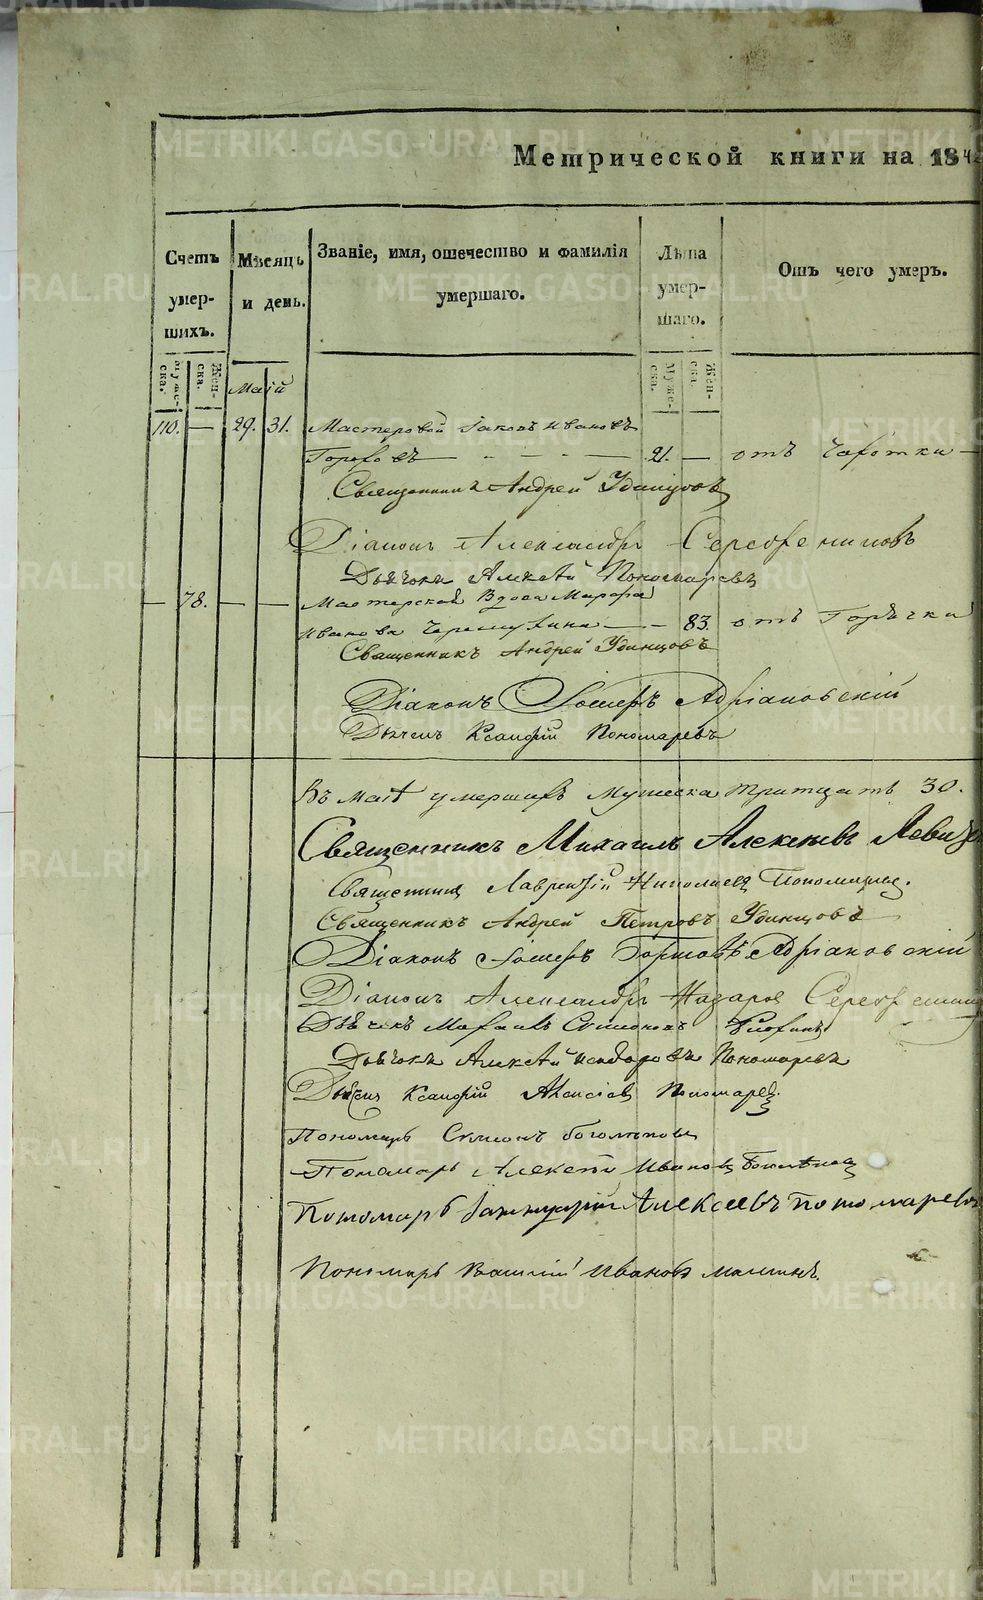 Метрической книги на 184
Счетъ умер-шихъ.
Мѣсяцъ и день.
Званіе, имя, отечество и фамилія умершаго.
Лѣта умер-шаго.
Отъ чего умеръ.
Муже-ска. Жен-ска.
Муже-ска. Жен-ска.
Маій
110. — 29. 31. Мастеровой Іаковъ Ивановъ
— 21. — отъ Чахотки —
Священникъ Андрей Удинцовъ
Діаконъ Александръ Серебрениковъ
Дьячокъ Алексѣй Пономаревъ
— 78. — — Мастерская Вдова Марфа
Иванова — 83. отъ Горячки
Священникъ Андрей Удинцовъ
Діаконъ Іосифъ Адріановскій
Дьячекъ Ксанфій Пономаревъ
Въ Маѣ умершихъ мужеска тритцать 30.
Священникъ Михаилъ Алексѣевъ
Священникъ Лаврентій Николаевъ
Священникъ Андрей Петровъ Удинцовъ
Діаконъ Іосифъ Адріановскій
Діаконъ Александръ Назаровъ
Дьячекъ Симоновъ
Дьячокъ Алексѣй Пономаревъ
Дьячекъ Ксанфій Алексіевъ Пономаревъ
Пономарь Симеонъ Боголѣповъ
Пономарь Алексѣй Ивановъ Боголѣповъ
Пономарь Іаннуарій Алексеевъ Пономаревъ
Пономарь Ивановъ
METRIKI.GASO-URAL.RU